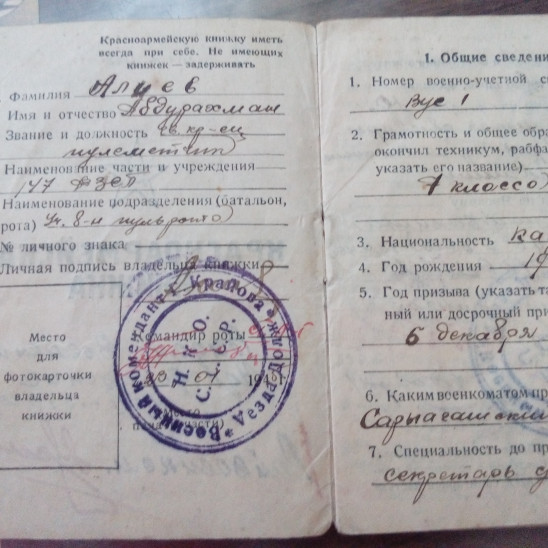 Красноармейскую книжку иметь
всегда при себе. Не имеющих
книжек — задерживать
Фамилия Алиев
Имя и отчество Абдурахман
Звание и должность кр-ец
пулеметчик
Наименование части и учреждения
147 АЗСП
Наименование подразделения (батальон,
рота)
№ личного знака
Личная подпись владельца книжки
Место
для
фотокарточки
владельца
книжки
Командир роты
Военный комендант г. Арапова
уезда Долж
Н. К. О.
С. С. С. Р.
I. Общие сведени
1. Номер военно-учетной с
Вус 1
2. Грамотность и общее обра
окончил техникум, рабфа
указать его название)
7 классов
3. Национальность ка
4. Год рождения 19
5. Год призыва (указать та
ный или досрочный при
6 декабря
6. Каким военкоматом пр
Сарыагашский
7. Специальность до пр
секретарь